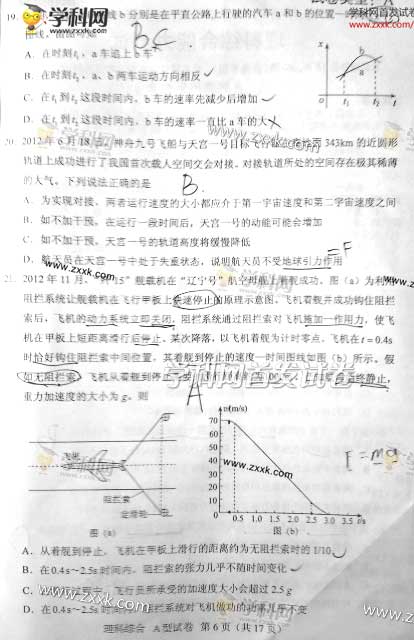 学科网首发试卷
19. 线b分别是在平直公路上行驶的汽车a和b的位置一
BC
A. 在时刻t₁，a车追上b车
B. 在时刻t₂，a、b两车运动方向相反
C. 在t₁到t₂这段时间内，b车的速率先减少后增加 ✓
D. 在t₁到t₂这段时间内，b车的速率一直比a车的大
x
t₁ t₂ t
20. 2012年6月18日，神舟九号飞船与天宫一号目标飞行器在离地面343km的近圆形
轨道上成功进行了我国首次载人空间交会对接。对接轨道所处的空间存在极其稀薄
的大气。下列说法正确的是
B.
A. 为实现对接，两者运行速度的大小都应介于第一宇宙速度和第二宇宙速度之间
B. 如不加干预，在运行一段时间后，天宫一号的动能可能会增加
C. 如不加干预，天宫一号的轨道高度将缓慢降低
D. 航天员在天宫一号中处于失重状态，说明航天员不受地球引力作用
=F
21. 2012年11月，“歼15”舰载机在“辽宁号”航空母舰上着舰成功。图（a）为利用
阻拦系统让舰载机在飞行甲板上快速停止的原理示意图。飞机着舰并成功钩住阻拦
索后，飞机的动力系统立即关闭，阻拦系统通过阻拦索对飞机施加一作用力，使飞
机在甲板上短距离滑行后停止。某次降落，以飞机着舰为计时零点，飞机在t=0.4s
时恰好钩住阻拦索中间位置，其着舰到停止的速度—时间图线如图（b）所示。假
如无阻拦索，飞机从着舰到停止
静止，
重力加速度的大小为g。则
A
飞机
阻拦索
定滑轮
图（a）
v(m/s)
70
60
50
40
30
20
10
0 0.5 1.0 1.5 2.0 2.5 3.0 3.5 t/s
图（b）
F=ma
A. 从着舰到停止，飞机在甲板上滑行的距离约为无阻拦索时的1/10
B. 在0.4s~2.5s时间内，阻拦索的张力几乎不随时间变化
C. 在滑行过程中，飞行员所承受的加速度大小会超过2.5 g
D. 在0.4s~2.5s时间内，阻拦系统对飞机做功的功率几乎不变
理科综合 A型试卷 第6页（共17页）
学科网
www.zxxk.com
学科网首发试卷